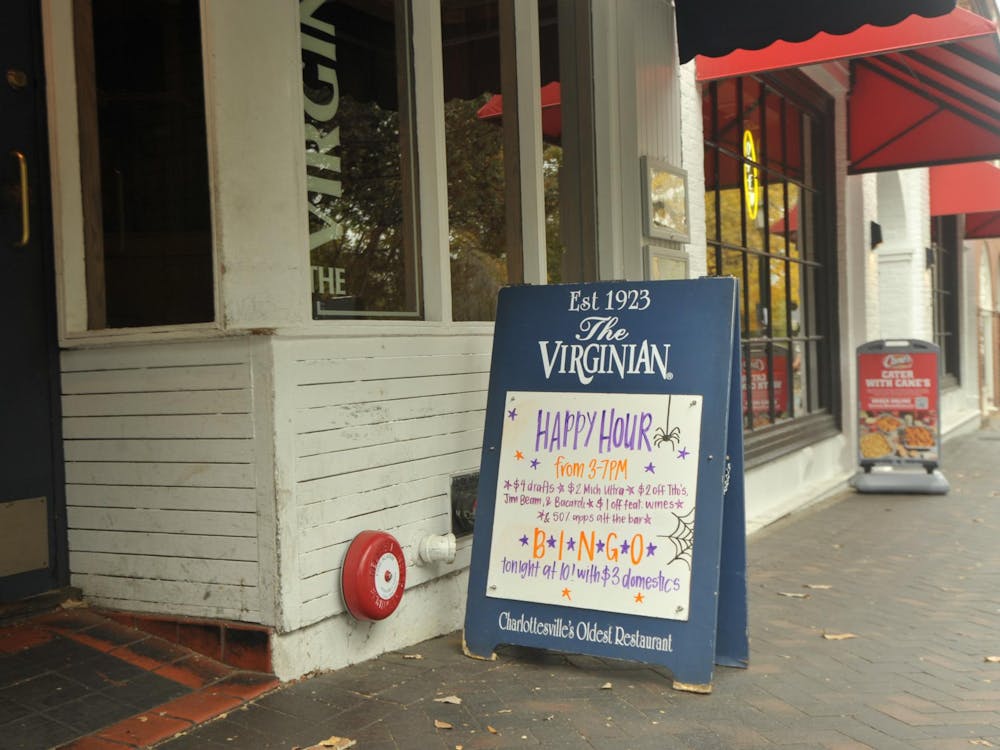 THE VIRGIN
Est 1923
The
VIRGINIAN®
HAPPY HOUR
from 3-7PM
*$4 drafts*$2 Mich Ultra*$2 off Tito's,
Jim Beam, & Bacardi*$1 off feat. wines*
*& 50% apps att the bar*
B*I*N*G*O
tonight at 10! with $3 domestics
Charlottesville's Oldest Restaurant
Cane's
CATER
WITH CANE'S